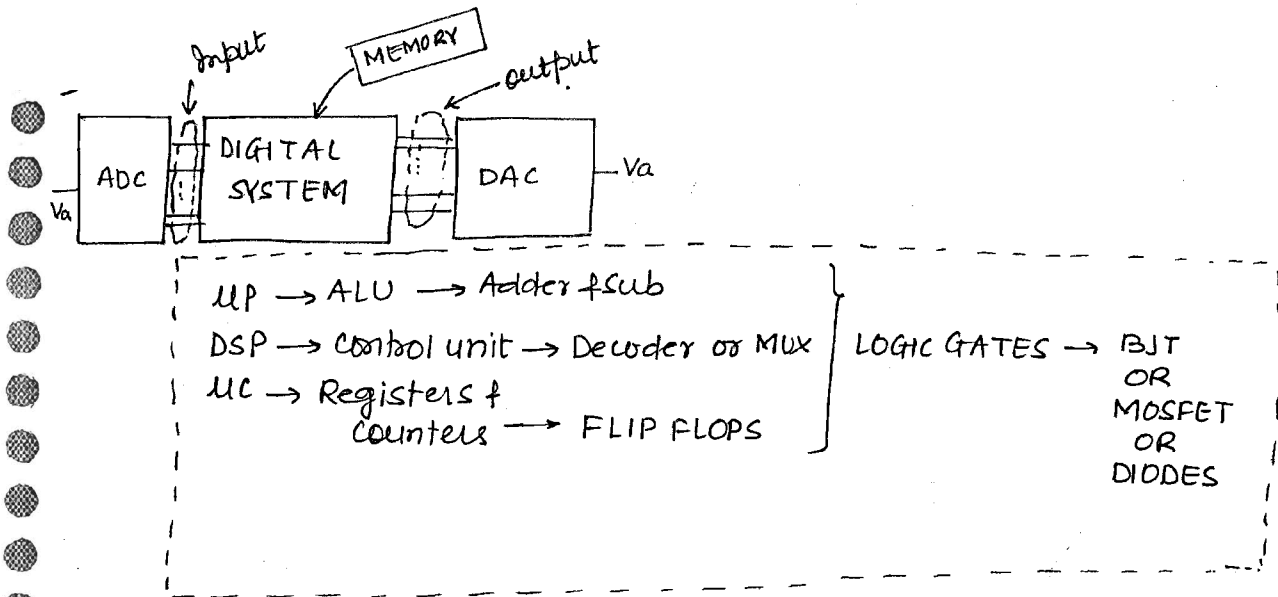 Input
MEMORY
output
ADC
DIGITAL
SYSTEM
DAC
Va
Va
μP → ALU → Adder & Sub
DSP → control unit → Decoder or MUX
μC → Registers &
counters → FLIP FLOPS
LOGIC GATES → BJT
OR
MOSFET
OR
DIODES